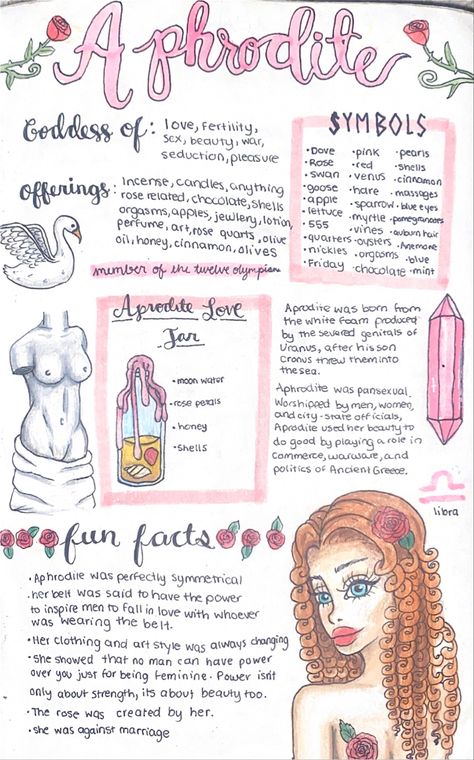 Aphrodite
Goddess of: love, fertility,
sex, beauty, war,
seduction, pleasure
offerings: Incense, candles, anything
rose related, chocolate, shells
orgasms, apples, jewllery, lotion,
perfume, art, rose quarts, olive
oil, honey, cinnamon, olives
member of the twelve olympian
SYMBOLS
•Dove •pink •pearls
•Rose •red •shells
•swan •venus •cinnamon
•goose •hare •massages
•apple •sparrow •blue eyes
•lettuce •myrtle •pomegranates
•555 •vines •auburn hair
•quarters •oysters •Anemone
•nickles •orgasms •blue
•Friday •chocolate •mint
Aprodite Love
Jar
•moon water
•rose petals
•honey
•shells
Aprodite was born from
the white foam produced
by the severed genitals of
Uranus, after his son
Cronus threw them into
the sea.
Aphrodite was pansexual.
Worshipped by men, women,
and city-state officials,
Aprodite used her beauty to
do good by playing a role in
commerce, warware, and
politics of Ancient Greece.
libra
fun facts
•Aphrodite was perfectly symmetrical
•her belt was said to have the power
to inspire men to fall in love with whoever
was wearing the belt.
•Her clothing and art style was always changing
•she showed that no man can have power
over you just for being feminine. Power isnt
only about strength, its about beauty too.
•The rose was created by her.
•she was against marriage